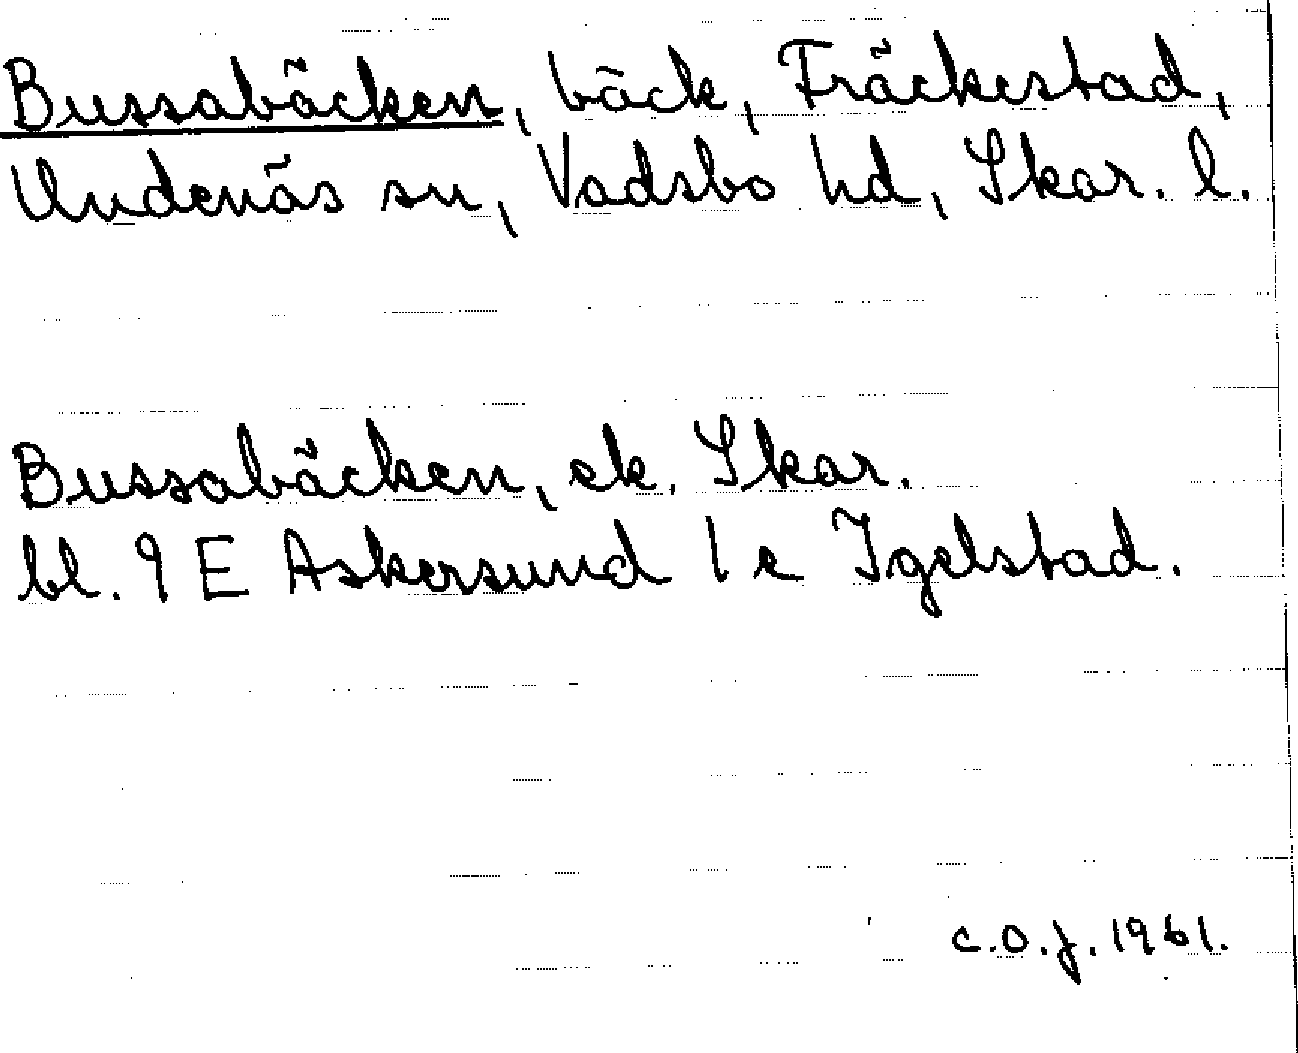 Bussabäcken, bäck, Fräckestad,
Undenäs sn, Vadsbo hd, Skar. l.
Bussabäcken, ek. Skar.
bl. 9 E Askersund 1 e Igelstad.
C.O.J. 1961.